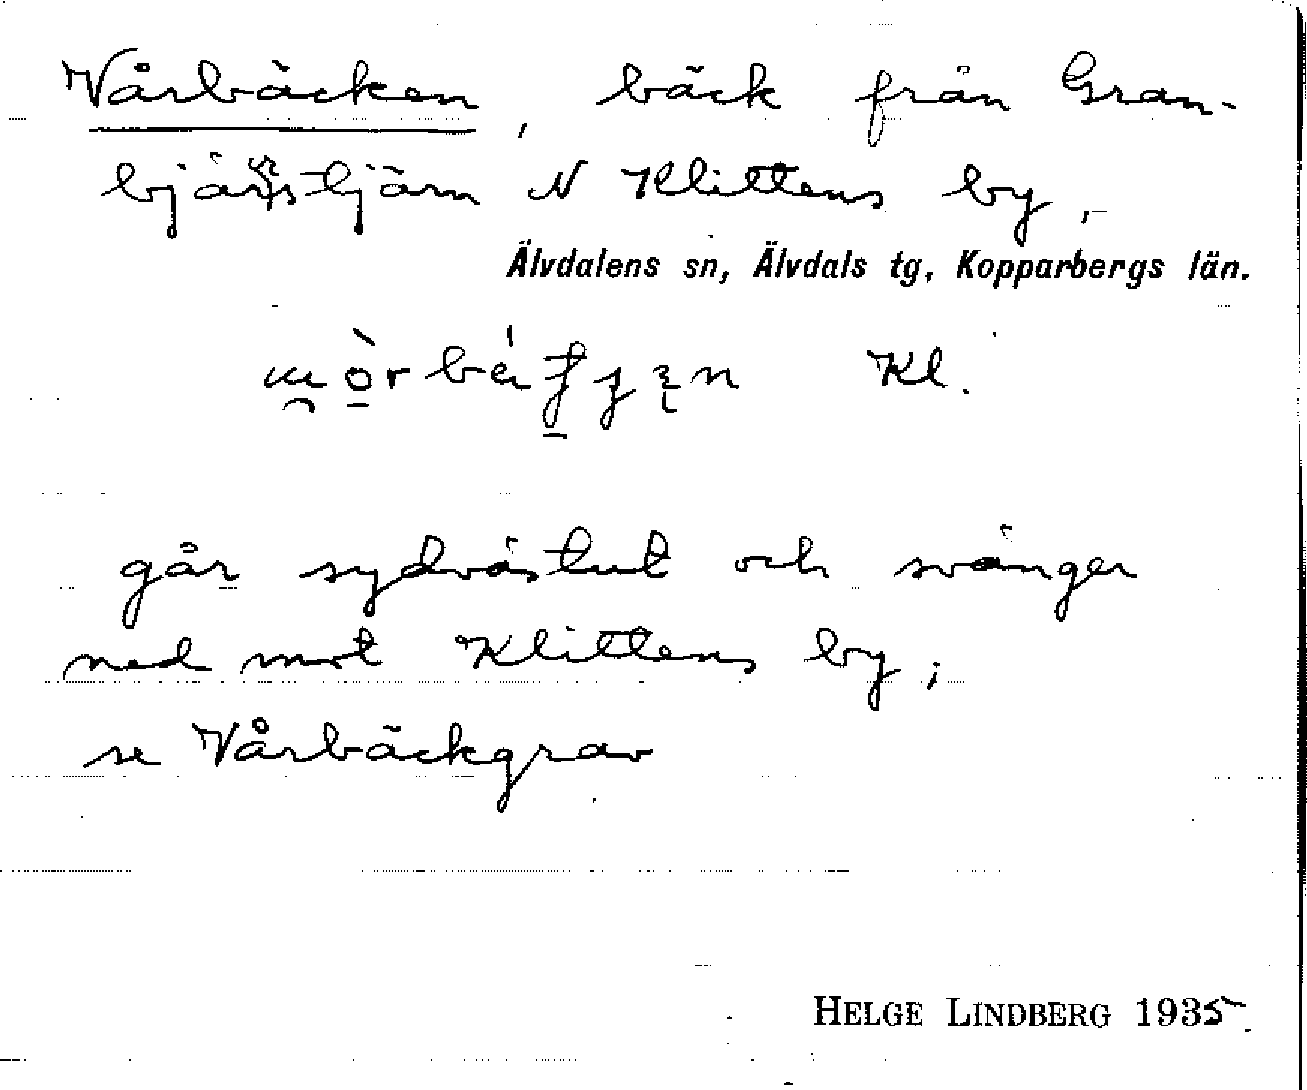 Vårbäcken, bäck från Gran-
bjärstjärn N Klittens by,
Älvdalens sn, Älvdals tg, Kopparbergs län.
Kl.
går sydvästut och svänger
ned mot Klittens by;
se Vårbäckgrav
HELGE LINDBERG 1935